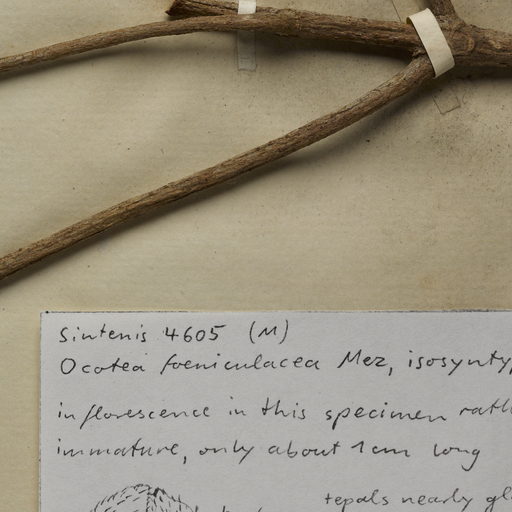 Sintenis 4605 (M)
Ocotea foeniculacea Mez, isosynty
in florescence in this specimen rath
immature, only about 1cm long
tepals nearly gl